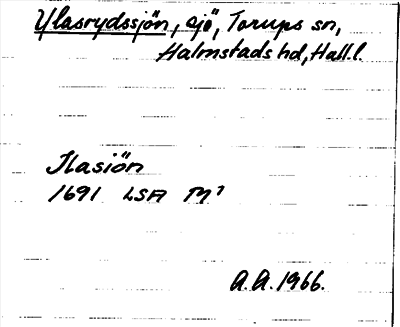 Ylasrydssjön, sjö, Torups sn,
Halmstads hd, Hall.l.
Ilasiön
1691 LSA M¹
A.A. 1966.